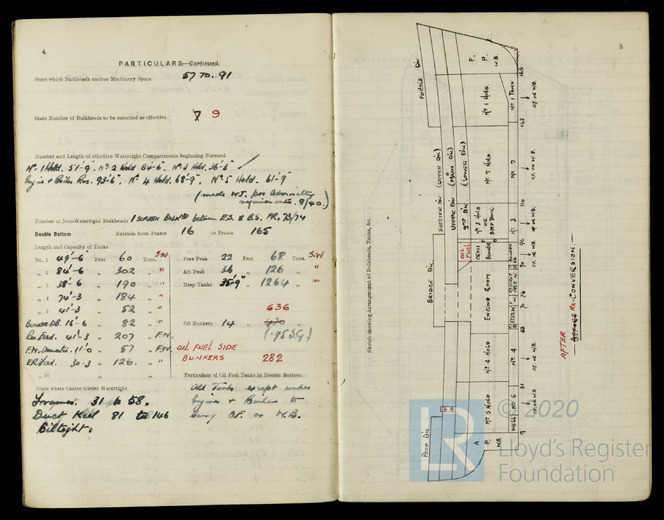 4
PARTICULARS—Continued.
State which Bulkheads enclose Machinery Space 57 TO 91
State Number of Bulkheads to be recorded as effective 7 9
Number and Length of effective Watertight Compartments beginning Forward
Nº 1 Hold. 51'-9" Nº 2 Hold 84'-6" Nº 3 Hold. 36'-5"
Engine & Boiler Rms. 93'-6" Nº 4 Hold. 68'-9" Nº 5 Hold. 61'-9"
(made W.T. per Admiralty
requirements. 8/40.)
Number of Non-Watertight Bulkheads 1 SCREEN BULKHD between E.S. & B.S. FR. 73/74
Double Bottom Extends from Frame 16 to Frame 165
Length and Capacity of Tanks
No. 1 49'-6 Feet 60 Tons. SW
" 2 84'-6 " 302 " "
" 3 38'-6 " 190 " "
" 4 74'-3 " 184 " "
41'-3 " 52 " "
Bunker DB. 16'-6 " 82 " "
41'-3 " 207 " F.W.
11'-0 " 57 " F.W.
30-3 " 126 " "
Fore Peak 22 Feet 68 Tons. SW
Aft Peak 36 " 126 "
Deep Tanks 35'-9" " 1264 "
636
Oil Bunkers 14 "
OIL FUEL SIDE
BUNKERS 282
Particulars of Oil Fuel Tanks in Double Bottom
All Tanks except under
Engines & Boilers to
carry O.F. or W.B.
State where Centre Girder Watertight
Frames. 31 to 58.
Duct Keel 81 to 146
Oiltight.
5
Sketch showing Arrangement of Bulkheads, Tanks, &c.
FO'C'SLE DK
SHELTER DK (UPPER DK)
UPPER DK (MAIN DK)
2ND DK (LOWER DK)
BRIDGE DK
POOP DK
F. P. W.B.
Nº 1 HOLD
Nº 2 HOLD
Nº 3 HOLD OR DEEP TANK
OIL FUEL
CROSS BUNKER
ENGINE ROOM
Nº 4 HOLD
Nº 5 HOLD
A. P. W.B.
Nº 1 TANK
Nº 2
Nº 3
Nº 4
Nº 5
WELL
OF. OR WB.
165
9
AFTER RE-CONVERSION
© 2020
LR
Lloyd's Register
Foundation